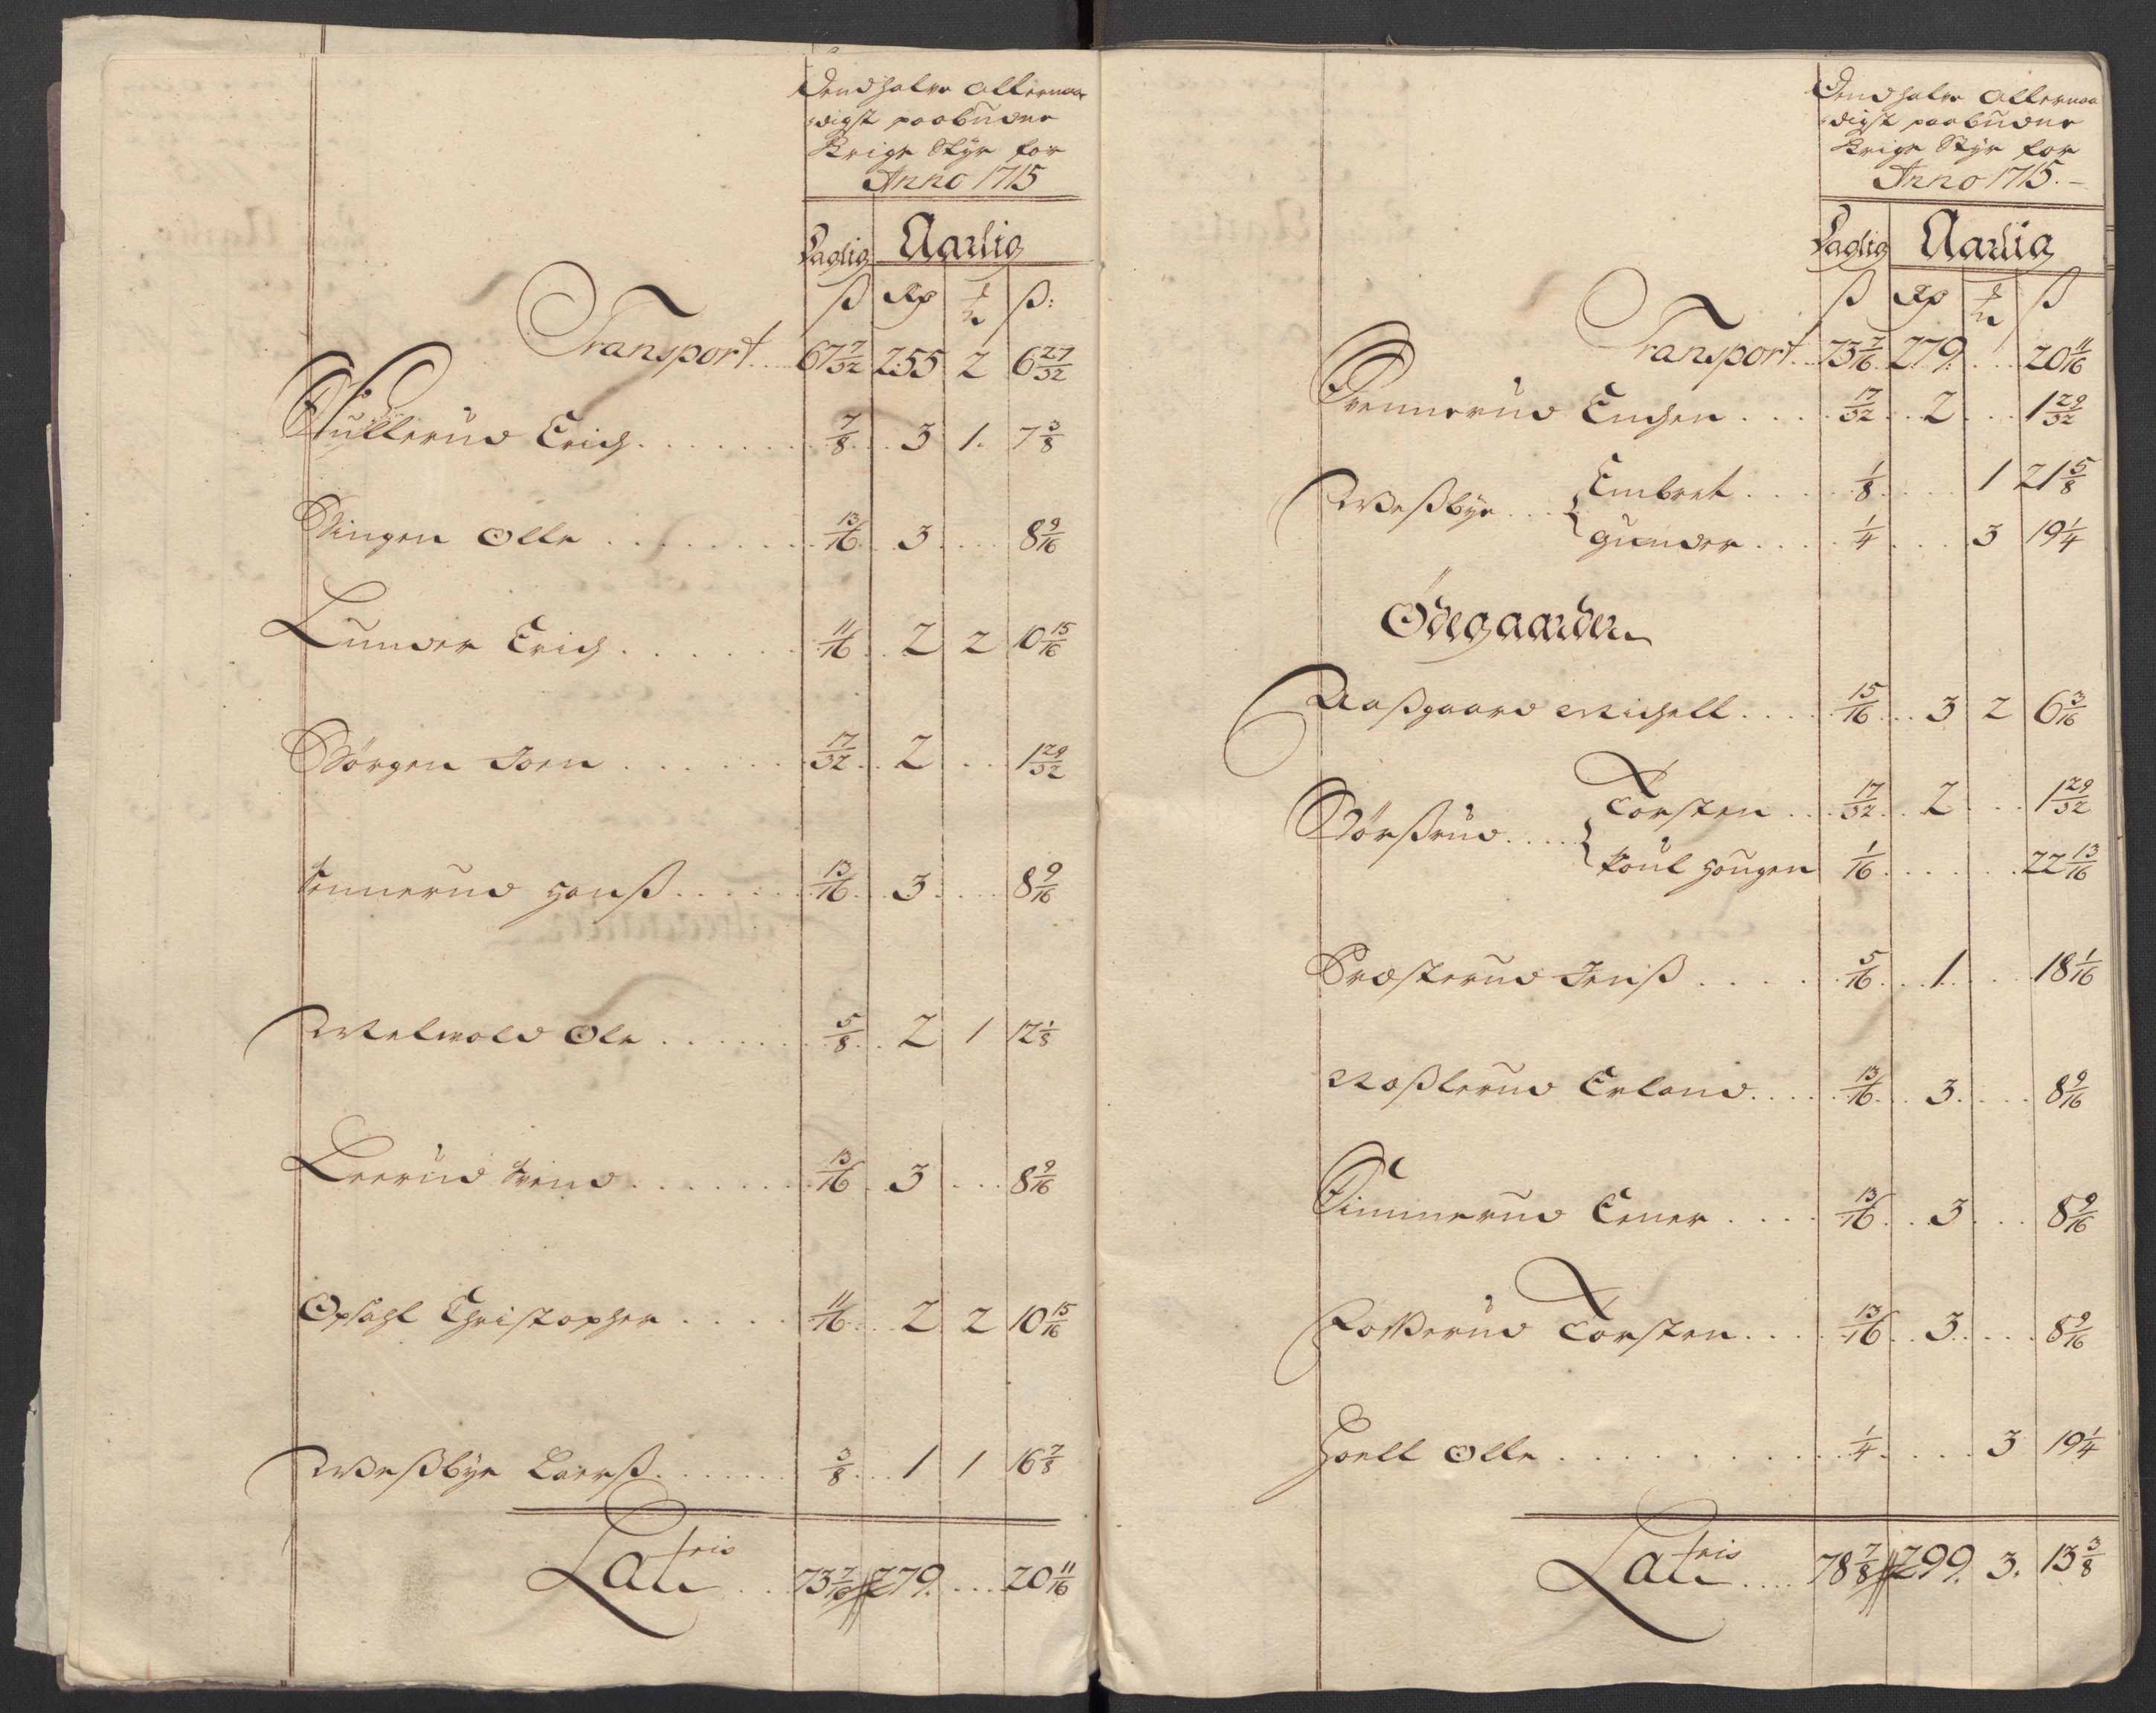 Dend halve allernaa
digst paabudne
Krigs Styr for
Anno 1715
Daglig Aarlig
ß Rd ß:
Transport 67 7/32 255 2 6 27/32
Erich 7/8 3 1 7 3/8
Ringen Olle 13/16 3 8 9/16
Lunder Erich 11/16 2 2 10 15/16
Børgen Joen 17/32 2 1 29/32
Hanß 13/16 3 8 9/16
Ole 5/8 2 1 12 1/8
Leerud 13/16 3 8 9/16
Opsahl Christopher 11/16 2 2 10 15/16
Weßbye Larß 3/8 1 1 16 7/8
Latris 73 7/16 279 20 11/16
Dend halve allernaa
digst paabudne
Krigs Styr for
Anno 1715.
Daglig Aarlig
ß Rd ß
Transport 73 7/16 279 20 11/16
17/32 2 1 29/32
Weßbye Embret 1/8 1 21 5/8
Gunder 1/4 3 19 1/4
Ødegaarden
Aaßgaard Michell 15/16 3 2 6 3/16
Torsten 17/32 2 1 29/32
Poul Hougen 1/16 22 13/16
Præsterud Jenß 5/16 1 18 1/16
Erland 13/16 3 8 9/16
Simmerud Einer 13/16 3 8 9/16
Torsten 13/16 3 8 9/16
Hoell Olle 1/4 3 19 1/4
Latris 78 7/8 299 3 13 3/8